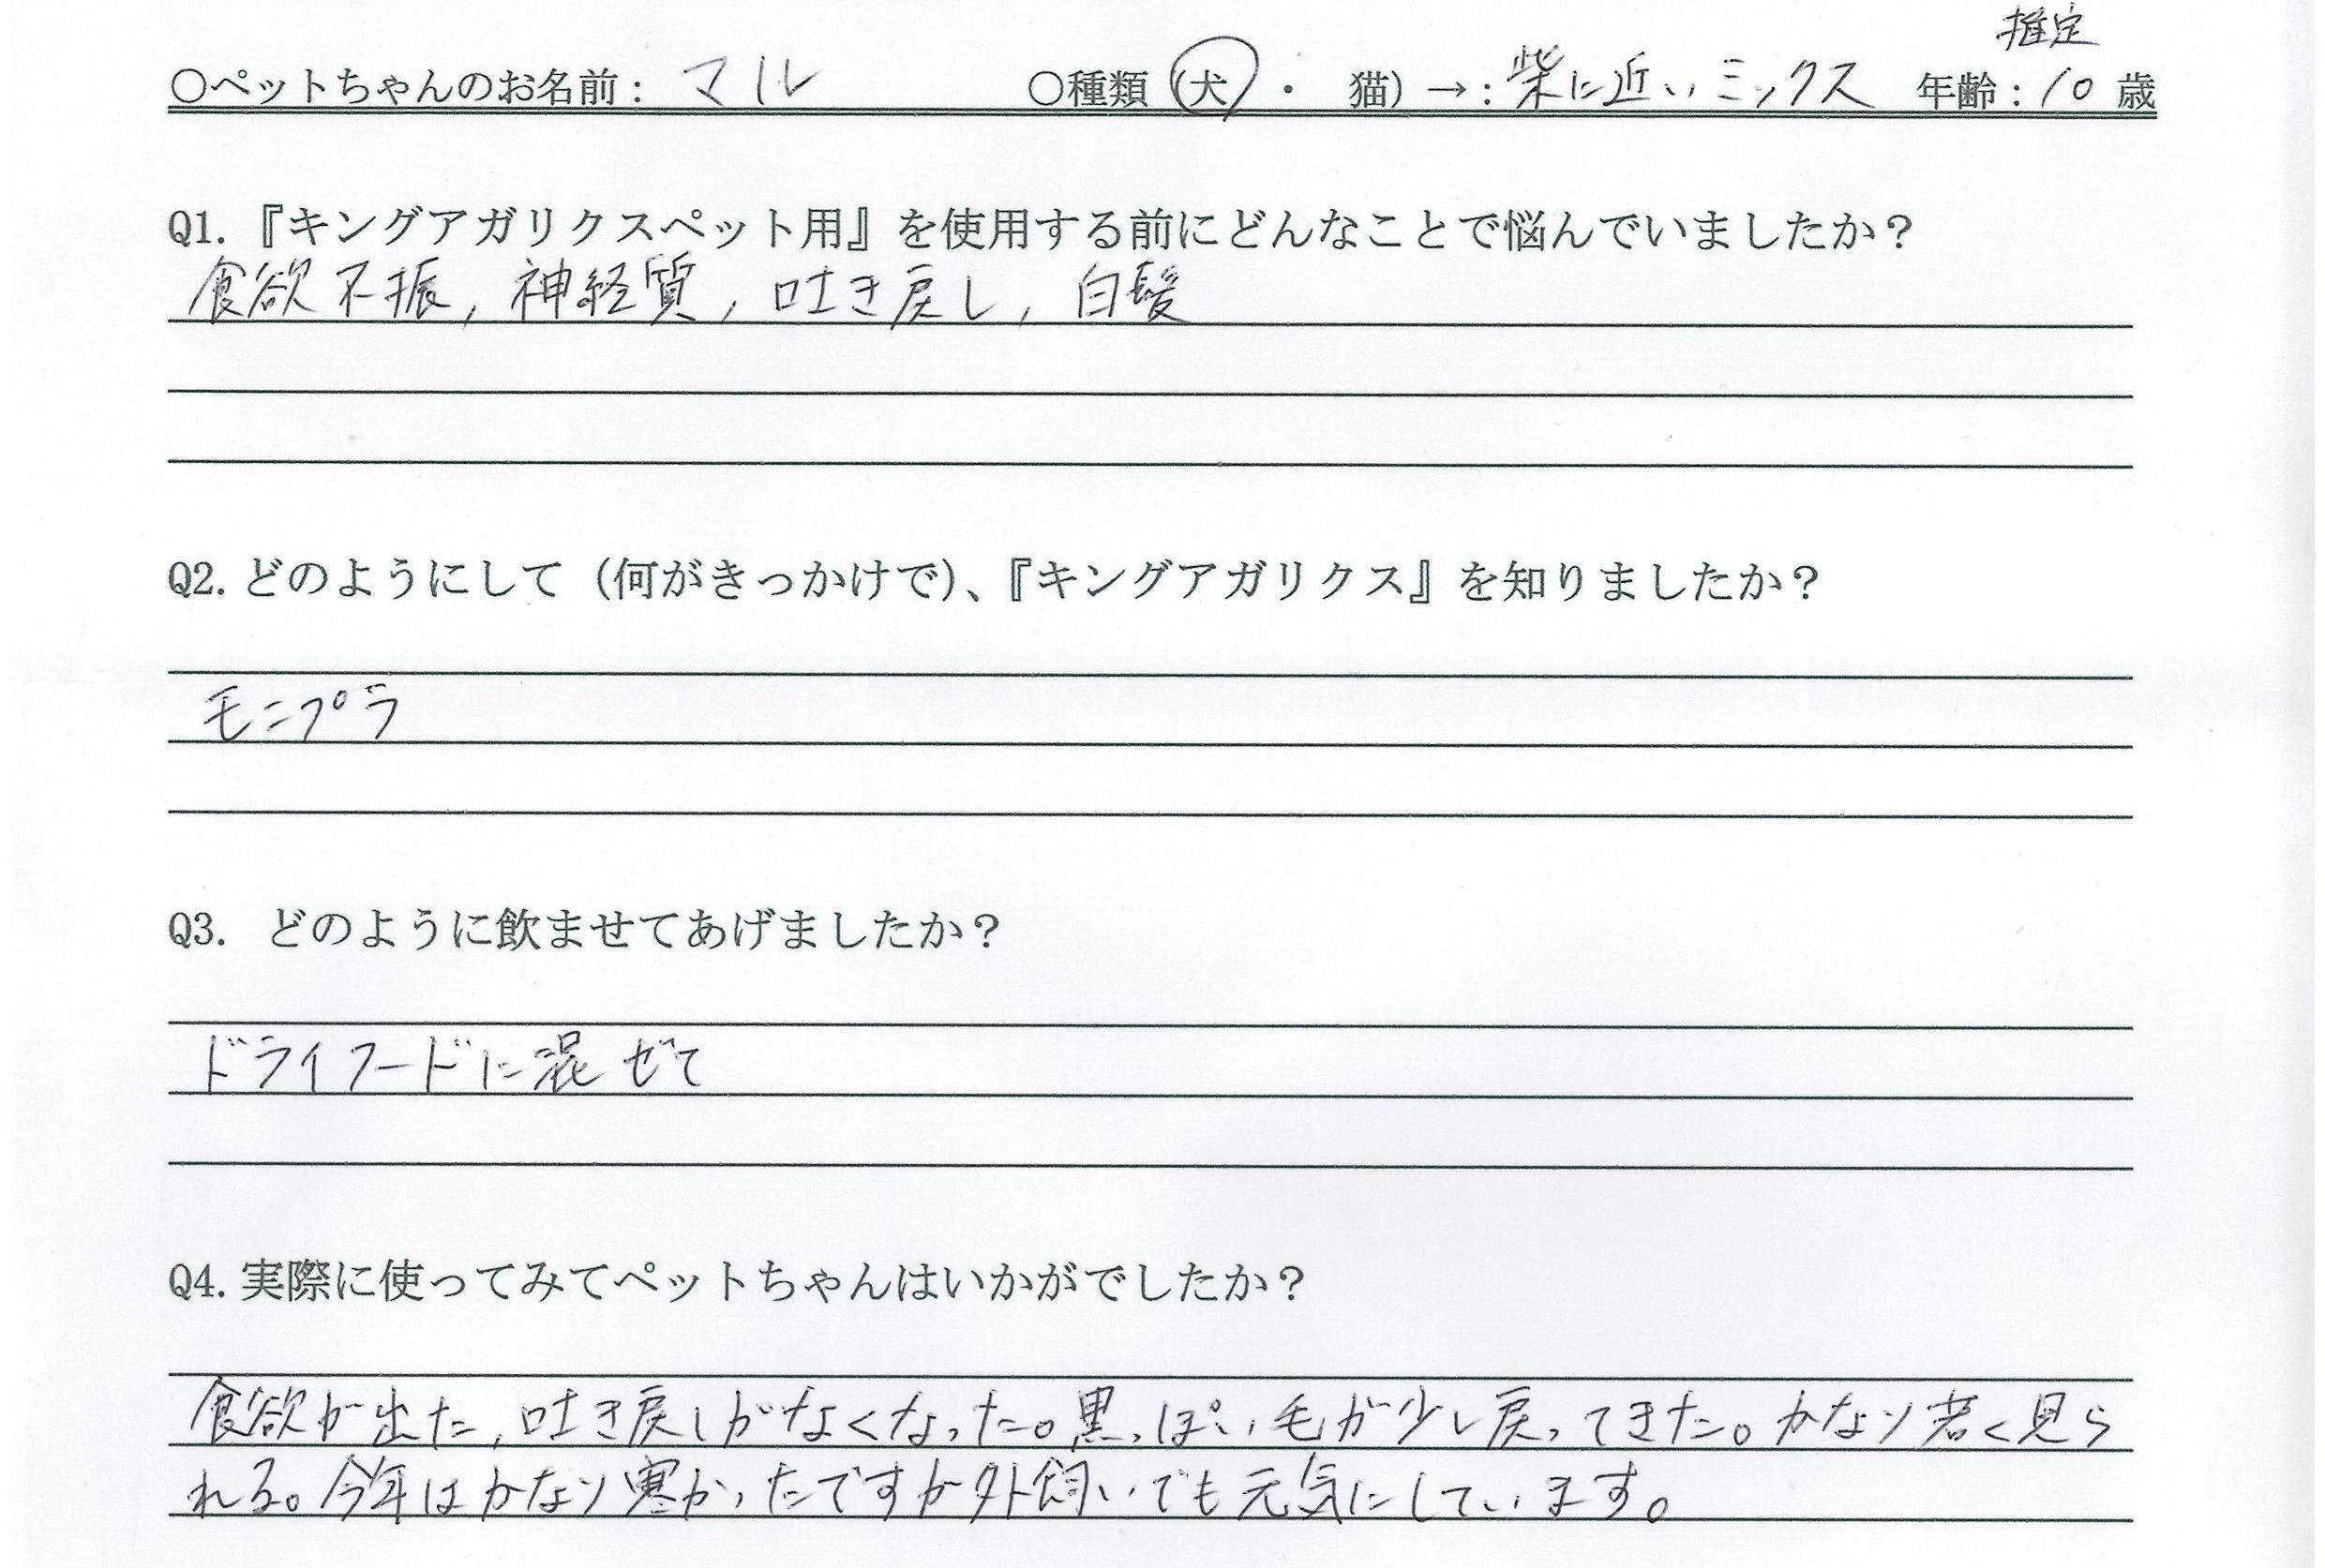 推定
○ペットちゃんのお名前：マル ○種類（犬・猫）→：柴に近いミックス 年齢：10歳
Q1.『キングアガリクスペット用』を使用する前にどんなことで悩んでいましたか？
食欲不振, 神経質, 吐き戻し, 白髪
Q2.どのようにして（何がきっかけで）、『キングアガリクス』を知りましたか？
モニプラ
Q3. どのように飲ませてあげましたか？
ドライフードに混ぜて
Q4.実際に使ってみてペットちゃんはいかがでしたか？
食欲が出た, 吐き戻しがなくなった。黒っぽい毛が少し戻ってきた。かなり若く見ら
れる。今年はかなり寒かったですが外飼いでも元気にしています。